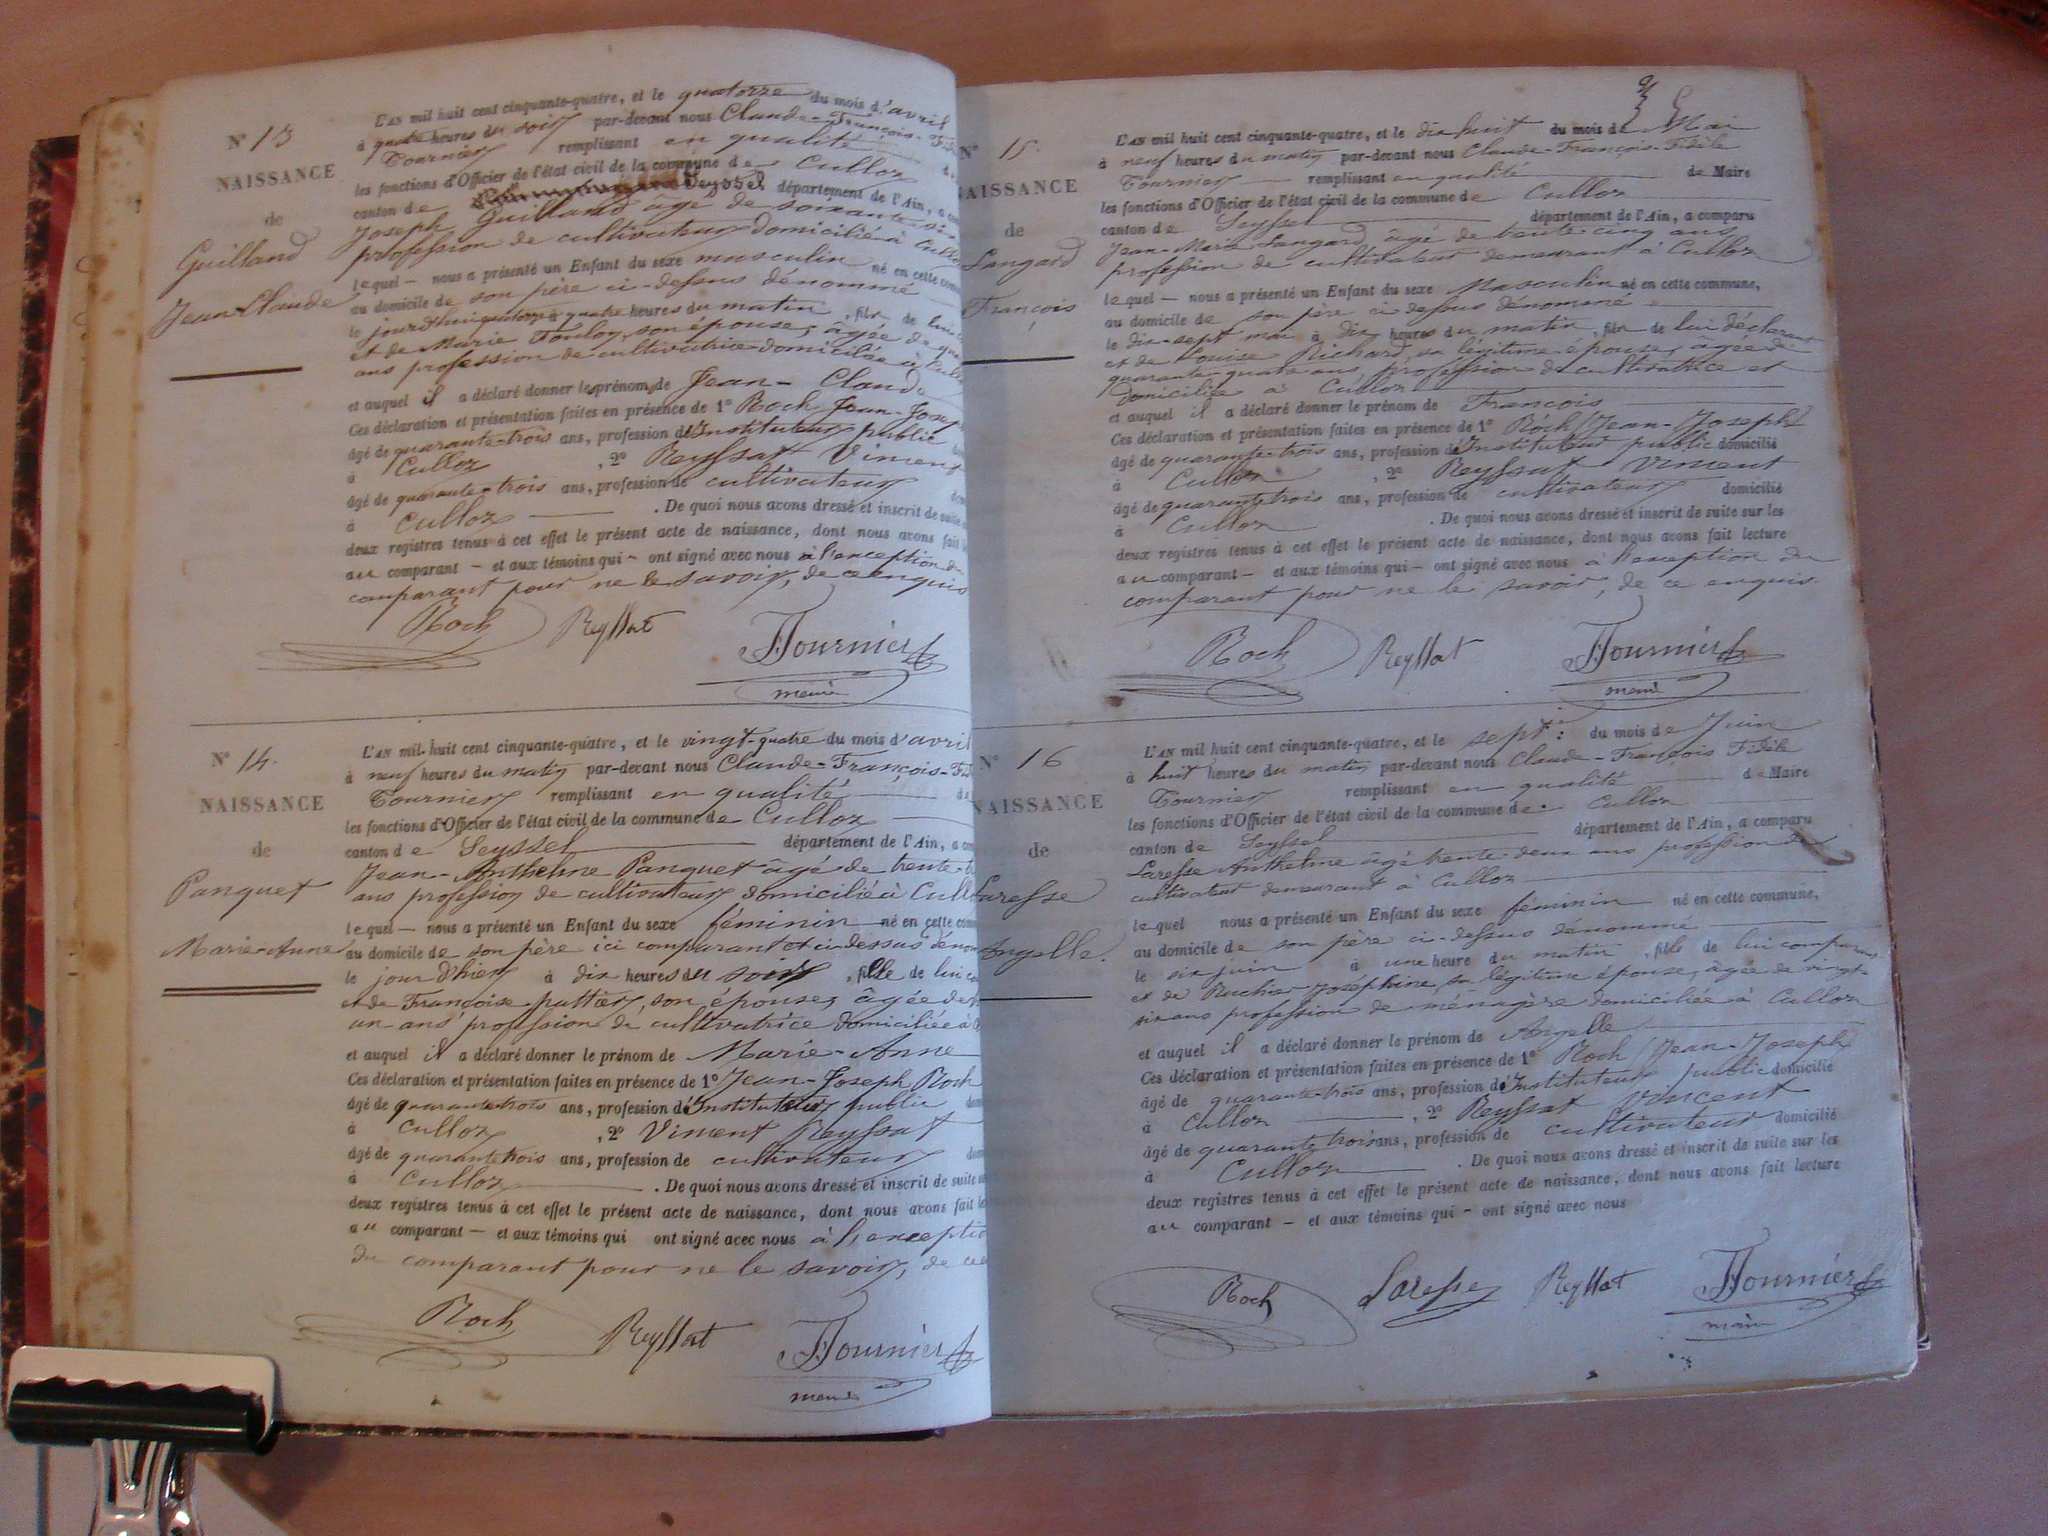 N° 13
NAISSANCE
de
Guilland
Jean-Claude
L'AN mil huit cent cinquante-quatre, et le quatorze du mois d'avril
à quatre heures du soir par-devant nous Claude-François-
Tournier remplissant en qualité de
les fonctions d'Officier de l'état civil de la commune de Culloz
canton de Seyssel département de l'Ain, a
Joseph Guilland âgé de soixante
profession de cultivateur domicilié à Culloz
lequel — nous a présenté un Enfant du sexe masculin né en cette
au domicile de son père ci-dessus dénommé
le jourd'hui quatorze à quatre heures du matin, fils de lui
et de Marie son épouse, âgée de
ans profession de cultivatrice domiciliée à
et auquel il a déclaré donner les prénoms de Jean-Claude
Ces déclaration et présentation faites en présence de 1° Roch Jean-
âgé de quarante-trois ans, profession d'Instituteur public
à Culloz, 2° Reyssat Vincent
âgé de quarante-trois ans, profession de cultivateur
à Culloz. De quoi nous avons dressé et inscrit de suite
deux registres tenus à cet effet le présent acte de naissance, dont nous avons fait
au comparant — et aux témoins qui — ont signé avec nous à l'exception du
comparant pour ne le savoir, de ce enquis
Roch Reyssat Tournier
maire
N° 14.
NAISSANCE
de
Panquet
Marie-Anne
L'AN mil huit cent cinquante-quatre, et le vingt-quatre du mois d'avril
à neuf heures du matin par-devant nous Claude-François-
Tournier remplissant en qualité de
les fonctions d'Officier de l'état civil de la commune de Culloz
canton de Seyssel département de l'Ain, a
Jean-Anthelme Panquet âgé de trente-
ans profession de cultivateur domicilié à
lequel — nous a présenté un Enfant du sexe féminin né en cette
au domicile de son père ici comparant et ci-dessus
le jour d'hier à dix heures du soir, fille de lui
et de Françoise son épouse, âgée de
un ans profession de cultivatrice domiciliée à
et auquel il a déclaré donner le prénom de Marie-Anne
Ces déclaration et présentation faites en présence de 1° Jean-Joseph Roch
âgé de quarante-trois ans, profession d'Instituteur public
à Culloz, 2° Vincent Reyssat
âgé de quarante-trois ans, profession de cultivateur
à Culloz. De quoi nous avons dressé et inscrit de suite
deux registres tenus à cet effet le présent acte de naissance, dont nous avons fait
au comparant — et aux témoins qui ont signé avec nous à l'exception
du comparant pour ne le savoir, de ce
Roch Reyssat Tournier
maire
N° 15.
NAISSANCE
de
Langard
François
L'AN mil huit cent cinquante-quatre, et le dix huit du mois de Mai
à neuf heures du matin par-devant nous Claude-François-Fidèle
Tournier remplissant en qualité de Maire
les fonctions d'Officier de l'état civil de la commune de Culloz
canton de Seyssel département de l'Ain, a comparu
Jean-Marie Langard âgé de trente-cinq ans
profession de cultivateur demeurant à Culloz
lequel — nous a présenté un Enfant du sexe Masculin né en cette commune,
au domicile de son père ci-dessus dénommé
le dix-sept mai à dix heures du matin, fils de lui déclarant
et de Louise Richard, sa légitime épouse, âgée de
quarante-quatre ans, profession de cultivatrice et
domiciliée à Culloz
et auquel il a déclaré donner le prénom de François
Ces déclaration et présentation faites en présence de 1° Roch (Jean-Joseph)
âgé de quarante-trois ans, profession d'Instituteur public domicilié
à Culloz, 2° Reyssat Vincent
âgé de quarante trois ans, profession de cultivateur domicilié
à Culloz. De quoi nous avons dressé et inscrit de suite sur les
deux registres tenus à cet effet le présent acte de naissance, dont nous avons fait lecture
au comparant — et aux témoins qui — ont signé avec nous à l'exception du
comparant pour ne le savoir, de ce enquis.
Roch Reyssat Tournier
maire
N° 16
NAISSANCE
de
Laresse
Angelle.
L'AN mil huit cent cinquante-quatre, et le sept: du mois de Juin
à huit heures du matin par-devant nous Claude-François Fidèle
Tournier remplissant en qualité de Maire
les fonctions d'Officier de l'état civil de la commune de Culloz
canton de Seyssel département de l'Ain, a comparu
Laresse Anthelme âgé trente deux ans profession de
cultivateur demeurant à Culloz
lequel nous a présenté un Enfant du sexe féminin né en cette commune,
au domicile de son père ci-dessus dénommé
le six juin à une heure du matin, fille de lui comparant
et de Joséphine, sa légitime épouse, âgée de vingt-
six ans profession de ménagère domiciliée à Culloz
et auquel il a déclaré donner le prénom de Angelle
Ces déclaration et présentation faites en présence de 1° Roch (Jean-Joseph)
âgé de quarante-trois ans, profession d'Instituteur public domicilié
à Culloz, 2° Reyssat Vincent
âgé de quarante trois ans, profession de cultivateur domicilié
à Culloz. De quoi nous avons dressé et inscrit de suite sur les
deux registres tenus à cet effet le présent acte de naissance, dont nous avons fait lecture
au comparant — et aux témoins qui — ont signé avec nous
Roch Laresse Reyssat Tournier
maire